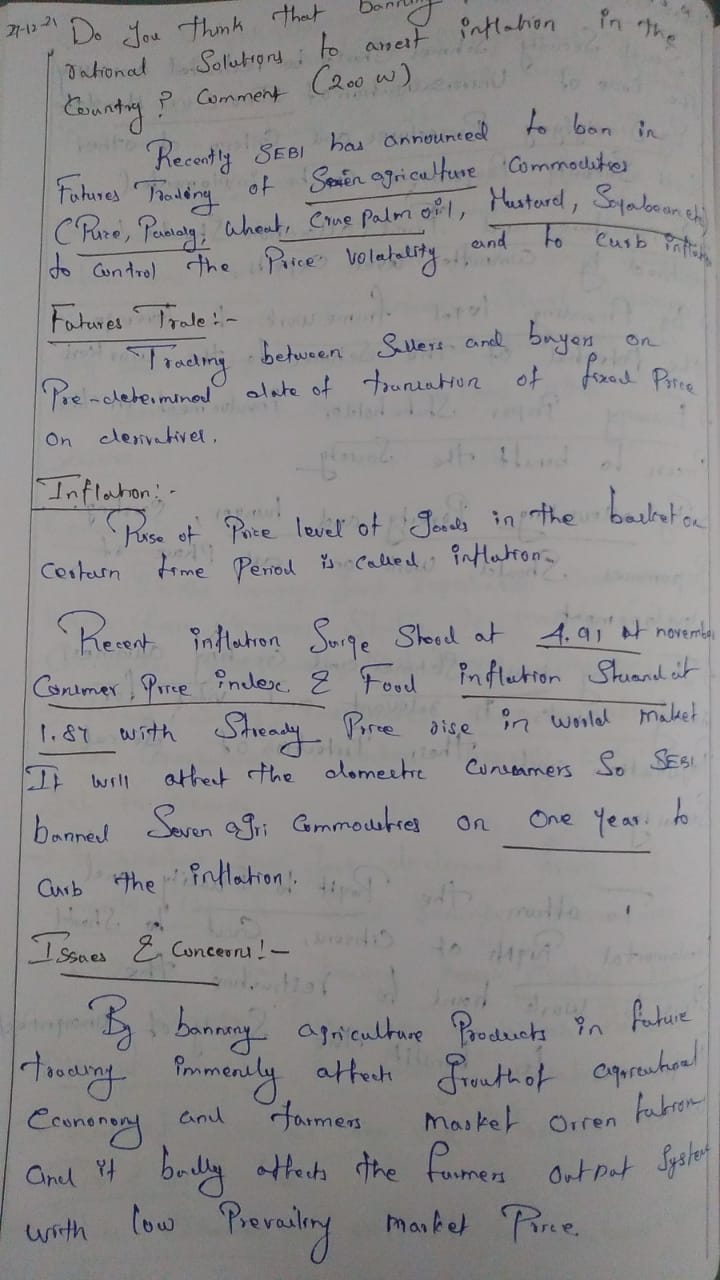 27-12-21 Do you think that banning in the
rational Solutions to arrest inflation in the
Country? Comment (200 w)
Recently SEBI has announced to ban in
Futures Trading of Seven agriculture Commodities
(Pure, Paddy, Wheat, Crue Palm oil, Mustard, Soyabean etc)
to control the Price Volatality and to curb
Futures Trale:-
Trading between Sellers and buyers on
Pre-determined date of of fixed Price
on derivatives.
Inflation:-
Rise of Price level of Goods in the basket on
certain time Period is called inflation.
Recent inflation Surge Stood at 4.91 at november
Consmer Price index & Food inflation Stuand at
1.87 with Stready Price rise in world market
It will affect the domestic Consumers So SEBI
banned Seven agri Commodities on One Year to
curb the inflation.
Issues & Concerns:-
By banning agriculture Products in future
trading immenly affects Grouth of agricultural
Econonomy and farmers Market Orren tation
and it badly affects the farmers out put System
with low Prevailing market Price.